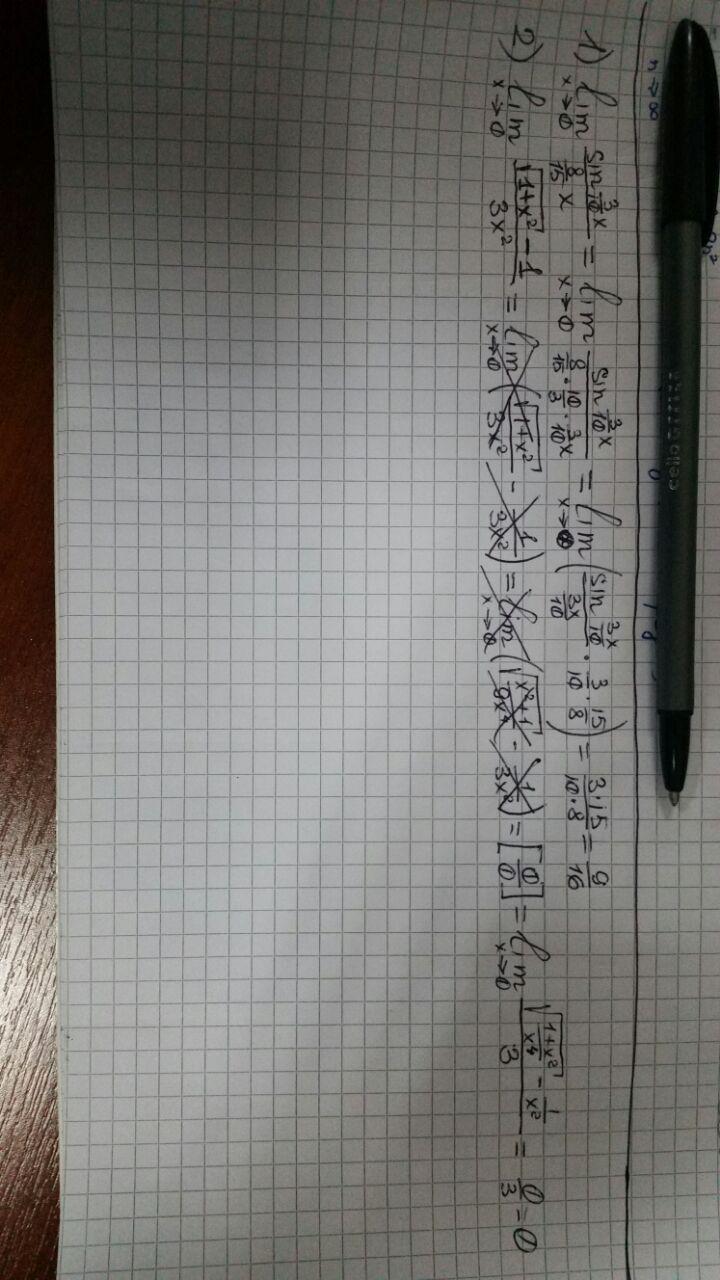 n→∞
cello
1) lim x→0 (sin 3/10 x)/(8/15 x) = lim x→0 (sin 3/10 x)/(8/15 · 10/3 · 3/10 x) = lim x→0 ((sin 3x/10)/(3x/10) · 3/10 · 15/8) = (3·15)/(10·8) = 9/16
2) lim x→0 (√(1+x²) - 1)/(3x²) = lim x→0 (√(1+x²)/(3x²) - 1/(3x²)) = lim x→0 (√((x²+1)/(9x⁴)) - 1/(3x²)) = [0/0] = lim x→0 (√((1+x²)/x⁴) - 1/x²)/3 = 0/3 = 0